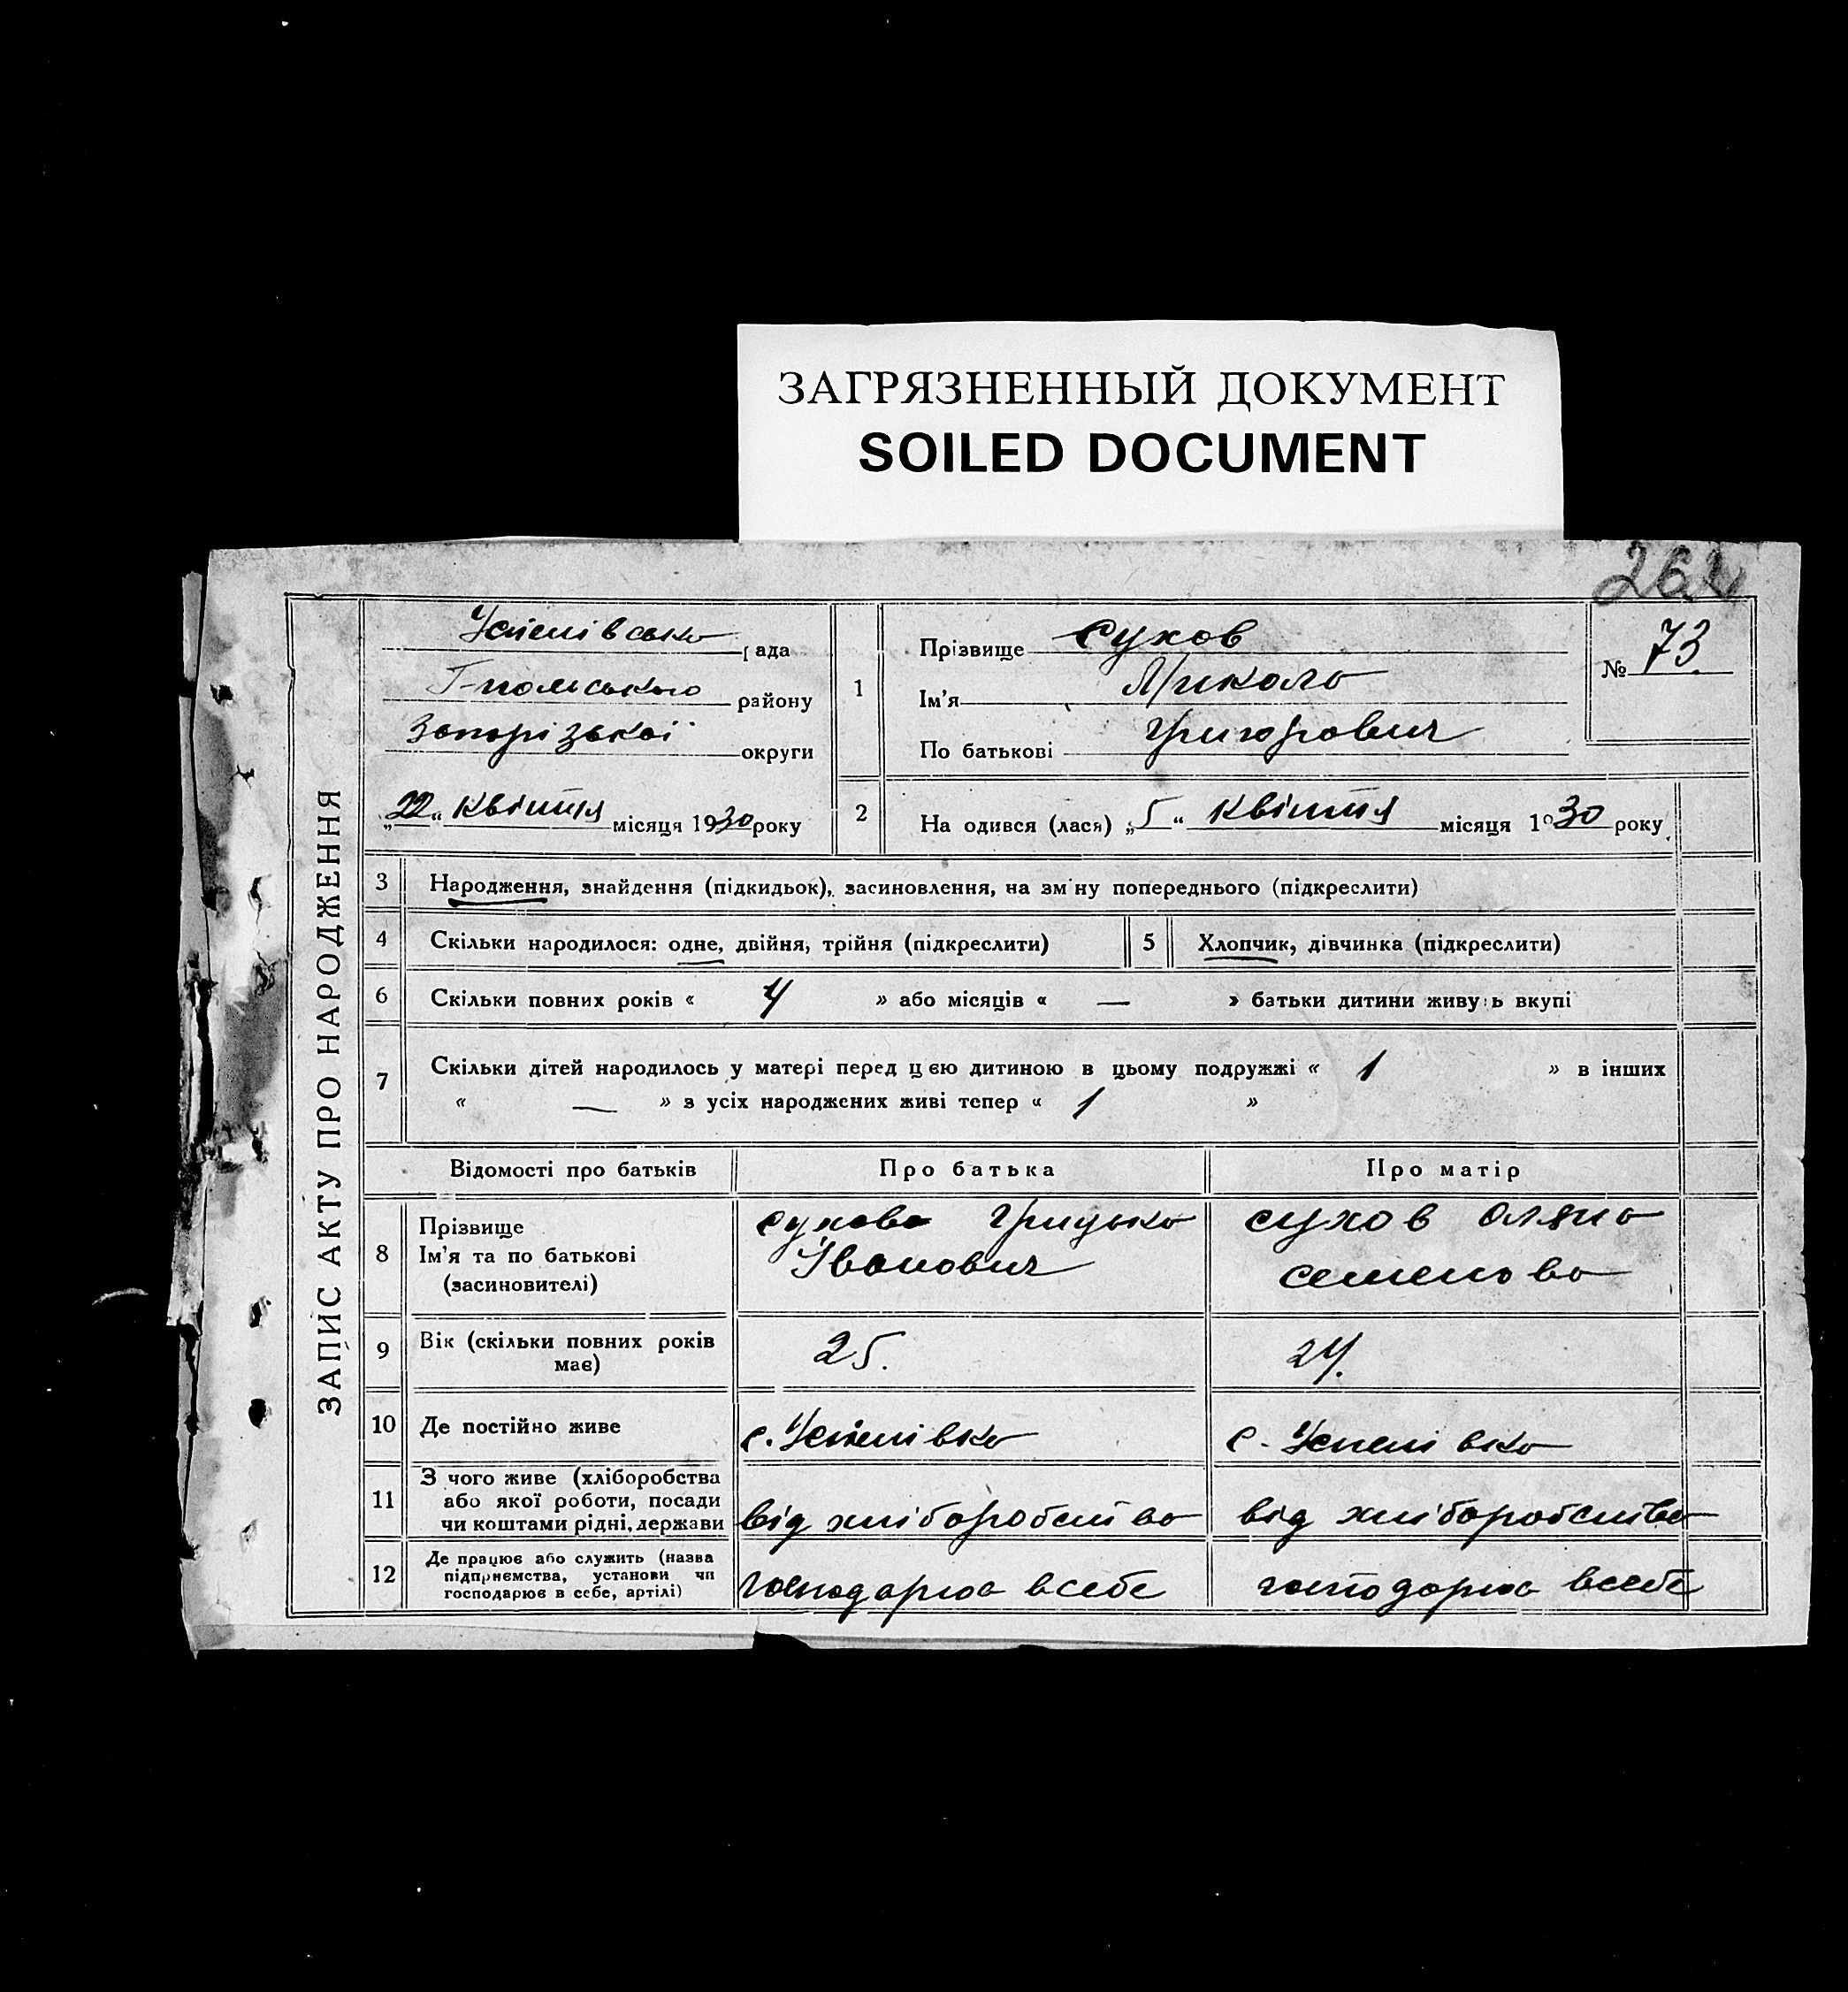 ЗАГРЯЗНЕННЫЙ ДОКУМЕНТ
SOILED DOCUMENT
262
ЗАПИС АКТУ ПРО НАРОДЖЕННЯ
Успенівсько рада
Г-польського району
Запорізької округи
„22“ квітня місяця 1930 року
1 Прізвище Сухов
Ім’я Микола
По батькові Григорович
№ 73
2 Народився (лася) „5“ квітня місяця 1930 року
3 Народження, знайдення (підкидьок), засиновлення, на зміну попереднього (підкреслити)
4 Скільки народилося: одне, двійня, трійня (підкреслити) 5 Хлопчик, дівчинка (підкреслити)
6 Скільки повних років « 4 » або місяців « — » батьки дитини живуть вкупі
7 Скільки дітей народилось у матері перед цею дитиною в цьому подружжі « 1 » в інших
« — » з усіх народжених живі тепер « 1 »
Відомості про батьків Про батька Про матір
8 Прізвище
Ім’я та по батькові
(засиновителі)
Сухов Грицько
Іванович
Сухов Оляна
Семенова
9 Вік (скільки повних років
має)
25. 24.
10 Де постійно живе с. Успенівка с. Успенівка
11 З чого живе (хліборобства
або якої роботи, посади
чи коштами рідні, держави
від хліборобства від хліборобства
12 Де працює або служить (назва
підприємства, установи чи
господарює в себе, артілі)
господарює всебе господарює всебе